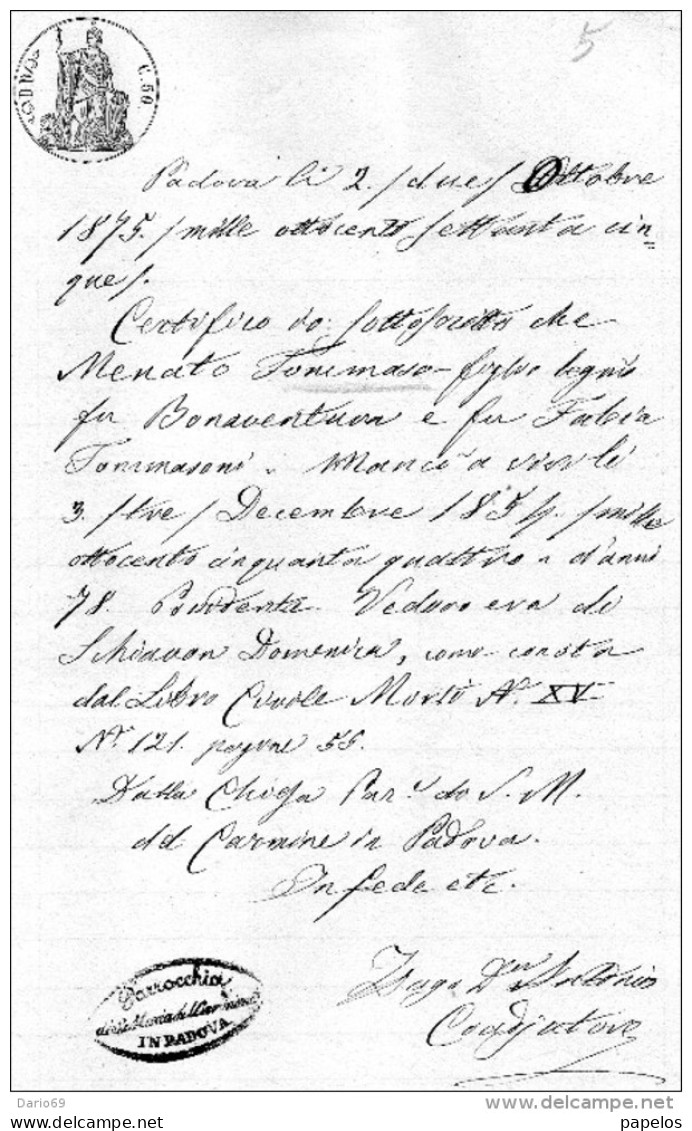 C. 50
5
Padova li 2. /due/ Ottobre
1875. /mille ottocento settanta cin=
que/.
Certifico io sottoscritto che
Menato Tommaso figlio legmo
fu Bonaventura e fu Fabia
Tommasoni - mancò a vivi li
3. /tre/ Decembre 1854. /mille
ottocento cinquanta quattro - d'anni
78. Possidente Vedovo era di
Schiavon Domenica, come consta
dal Libro Civile Morti No. XV
No. 121. pagina 55.
Dalla Chiesa Par. di S. M.
del Carmine in Padova.
In fede etc.
Dn Antonio
Coadjutore
Parrocchia
IN PADOVA
Dario69
@ delcampe.net
papelos